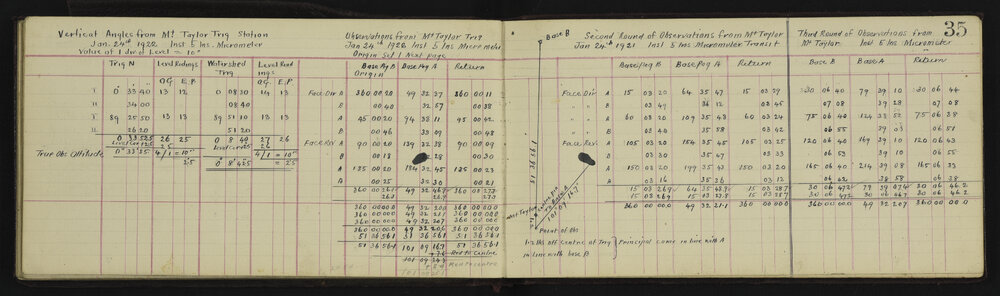 35
Vertical Angles from Mt Taylor Trig Station
Jan. 24th 1922 Inst 5 Ins. Micrometer
Value of 1 div of Level = 10"
Trig N Level Readings Watershed Trig Level Readings
O.G E.P O.G E.P
I 0 33 40 13 12 0 08 30 14 13
II 34 00 08 40
I 89 25 50 13 13 89 51 10 13 13
II 26 20 51 20
0 33 52.5 26 25 0 8 40 27 26
True Obs Altitude
Observations from Mt Taylor Trig
Jan 24th 1922 Inst 5 Ins Micrometer
Origin Set 1 Next page
Base Peg B Base Peg A Return
Origin
Face Dir A 360 00 20 49 32 37 360 00 11
B 00 40 32 57 00 38
A 45 00 20 94 38 11 95 00 42
B 00 46 33 09 00 48
Face Rev. A 90 00 20 139 32 38 90 00 09
B 00 18 28 00 30
A 135 00 20 184 32 45 135 00 23
A 00 25 32 30 00 21
360 00 00.0 49 32 20.0 360 00 00.0
360 00 00.0 49 32 21.1 360 00 00.0
360 00 00.0 49 32 20.7 360 00 00.0
360 00 00.0 49 32 20.6 360 00 00.0
51 36 56.1 51 36 56.1 51 36 56.1
51 36 56.1 101 09 16.7 51 36 56.1
Red to Centre
101 09
Base B
Mt Taylor
101 09 16.7
Point of Obs
Second Round of Observations from Mt Taylor
Jan 24th 1921 Inst 5 Ins Micrometer Transit
Base Peg B Base Peg A Return
A 15 03 20 64 35 47 15 03 29
B 03 49 36 12 03 45
A 60 03 20 109 35 43 60 03 24
B 03 40 35 58 03 42
A 105 03 20 154 35 45 105 03 25
B 03 30 35 47 03 33
A 150 03 20 199 35 43 150 03 20
B 03 16 35 36 03 12
15 03 26.9 64 35 48.9 15 03 28.7
360 00 00.0 49 32 21.1 360 00 00.0
Third Round of Observations from
Mt Taylor Inst 5 Ins Micrometer
Base B Base A Return
30 06 40 79 39 10 30 06 44
07 08 39 28 07 08
75 06 40 124 38 52 75 06 38
06 55 39 03 06 51
120 06 40 169 39 10 120 06 43
06 53 39 10 06 55
165 06 40 214 39 08 165 06 33
06 42 38 58 06 38
30 06 47.2 79 39 07.4 30 06 46.2
360 00 00.0 49 32 20.7 360 00 00.0
off Centre of Trig Principal came in line with A
in Line with base B